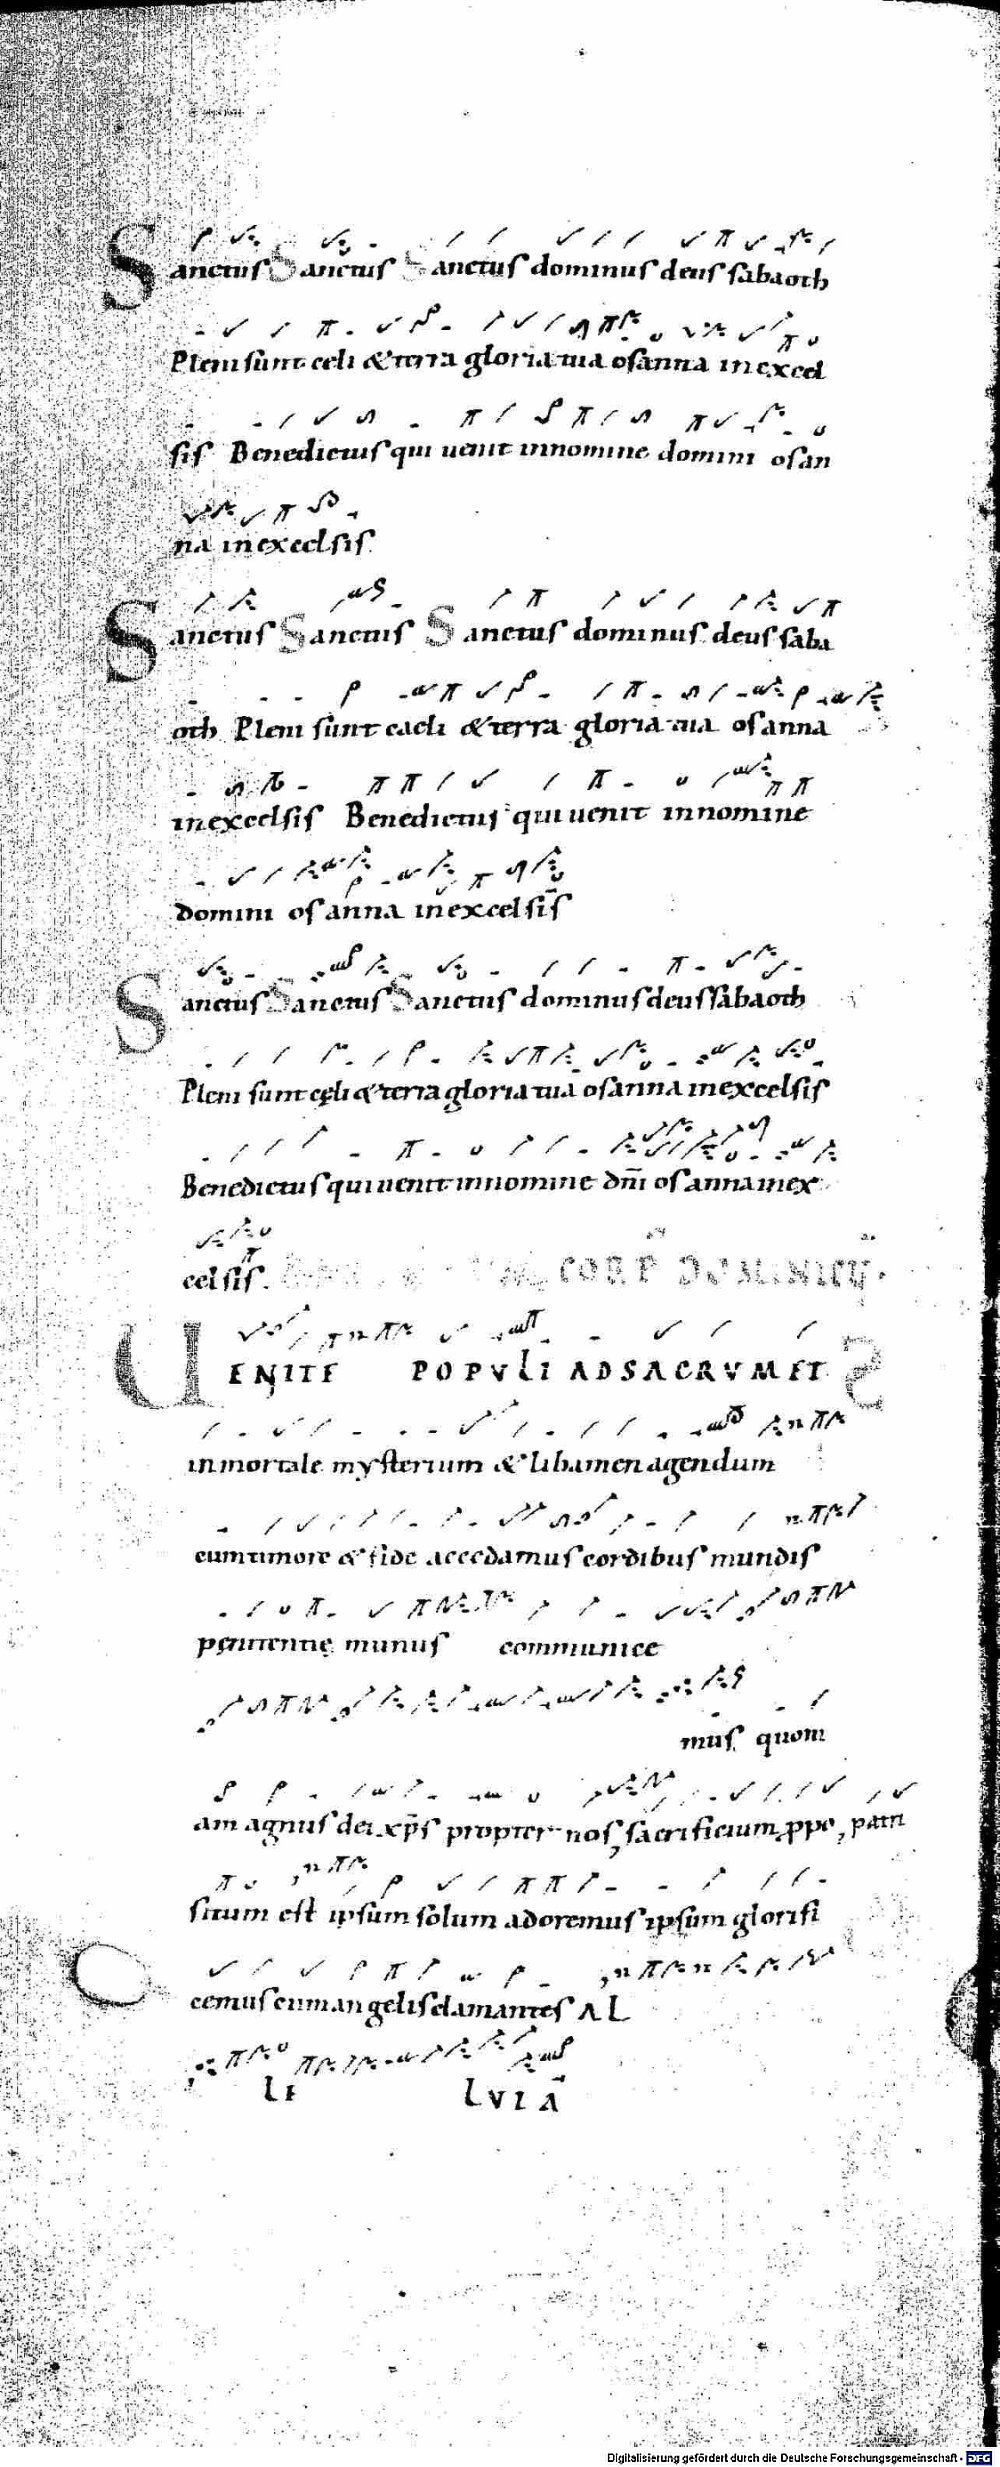 Sanctus Sanctus Sanctus dominus deus sabaoth
Pleni sunt celi & terra gloria tua osanna in excel
sis Benedictus qui uenit innomine domini osan
na in excelsis
Sanctus Sanctus Sanctus dominus deus saba
oth Pleni sunt caeli & terra gloria tua osanna
in excelsis Benedictus qui uenit innomine
domini osanna in excelsis
Sanctus Sanctus Sanctus dominus deus sabaoth
Pleni sunt cęli & terra gloria tua osanna in excelsis
Benedictus qui uenit innomine dn̄i osanna in ex
celsis. CORP̄ DOMINICŪ.
UENITE POPVLI AD SACRVM ET
inmortale mysterium & libamen agendum
cum timore & fide accedamus cordibus mundis
pęnitentię munus communice
mus quoni
am agnus dei xp̄s propter nos sacrificium ppe, patri
situm est ipsum solum adoremus ipsum glorifi
cemus cum angelis clamantes AL
LE LVIA
Digitalisierung gefördert durch die Deutsche Forschungsgemeinschaft - DFG